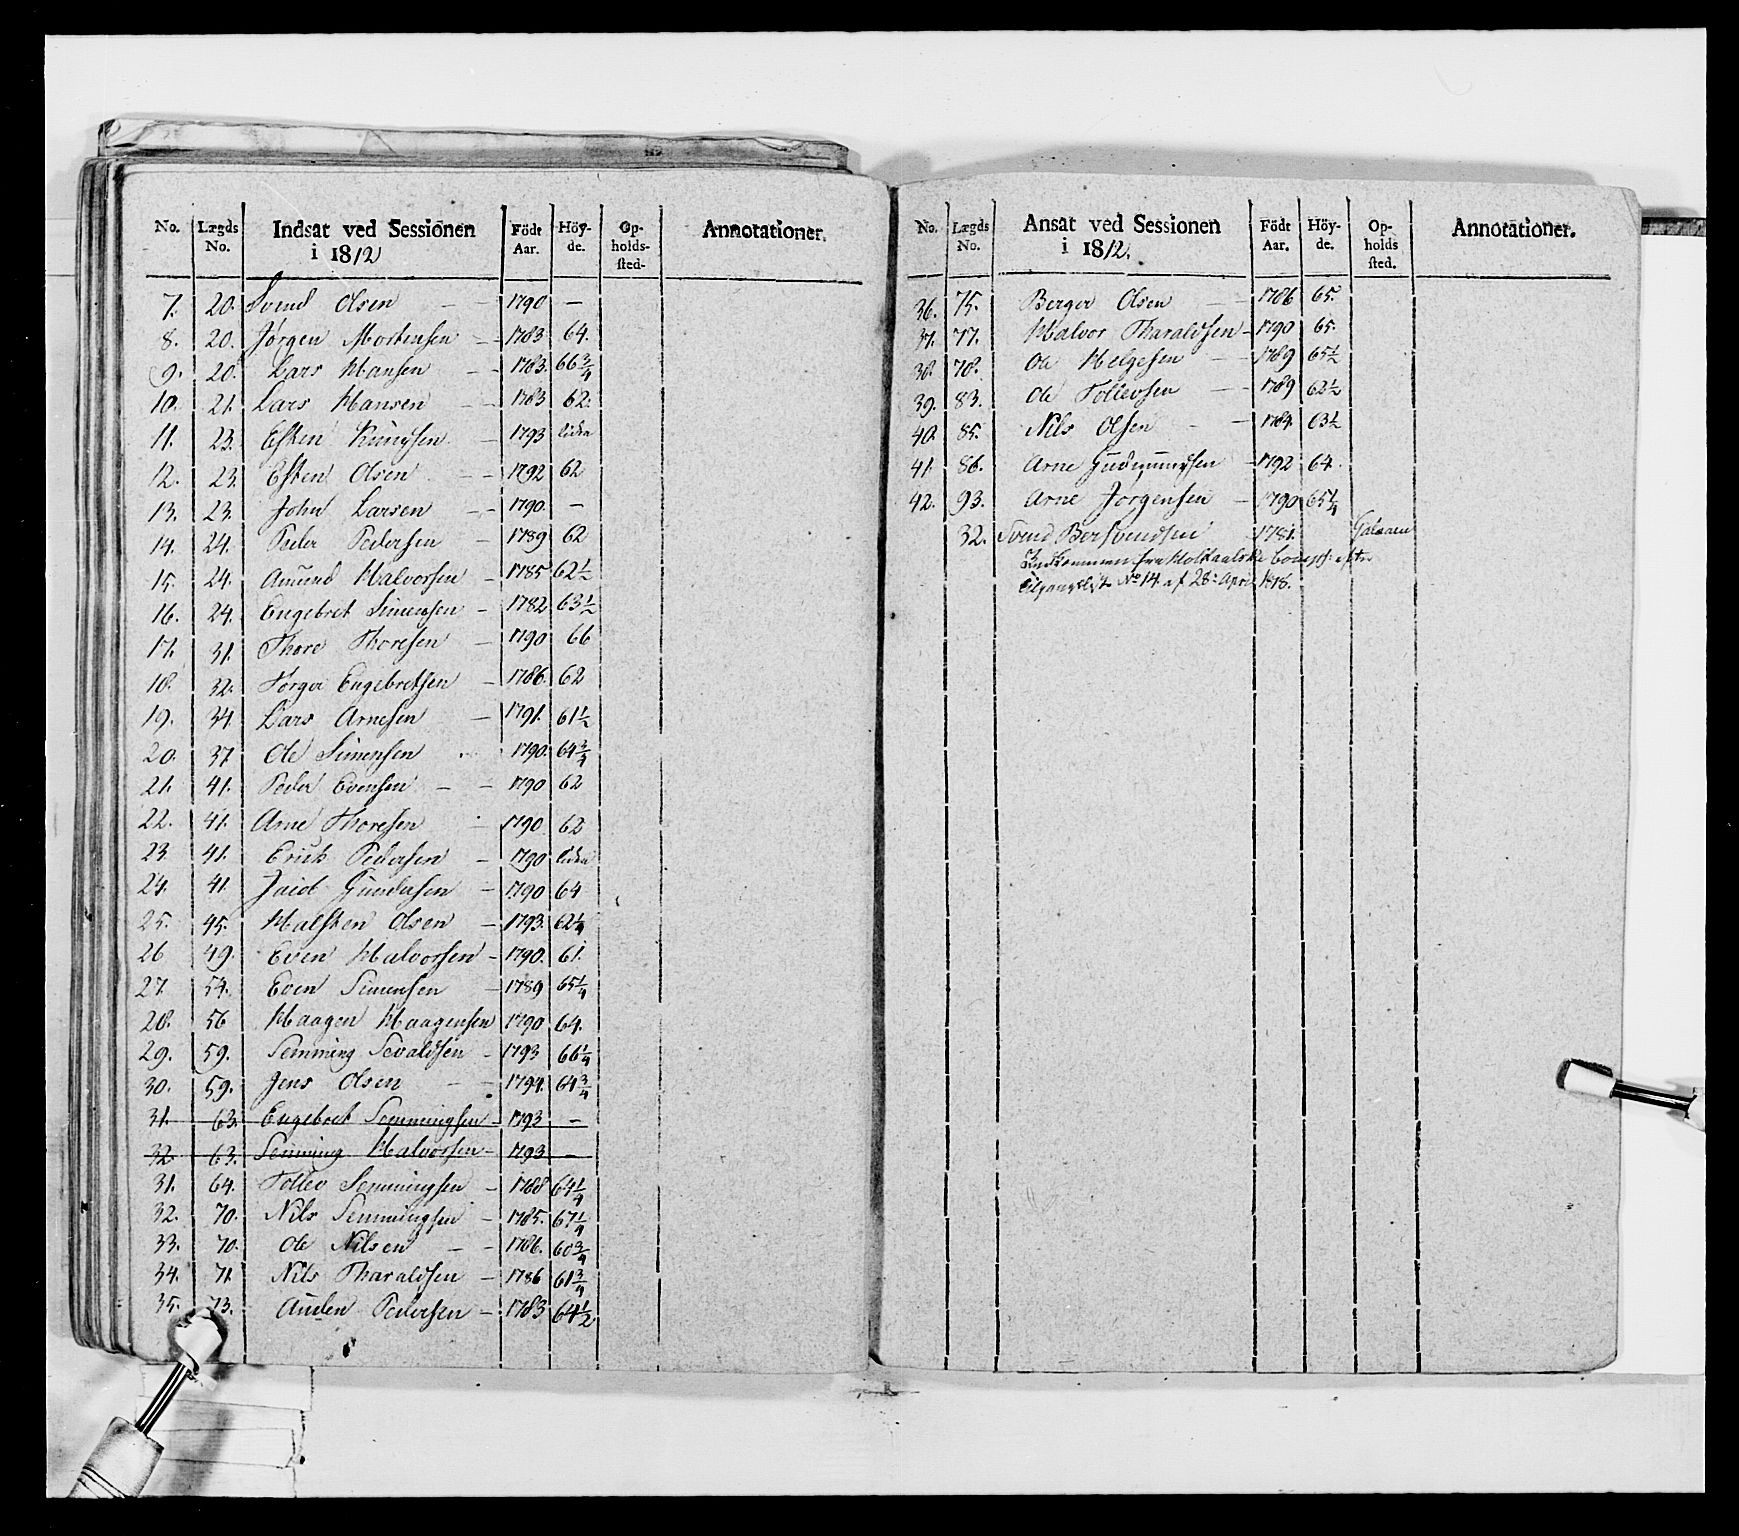 No. Lægds No. Indsat ved Sessionen i 1812 Födt Aar. Höyde. Opholds-sted- Annotationer.
7. 20. Svend Olsen — — 1790 —
8. 20. Jørgen Mortensen — 1783 64.
9. 20. Lars Hansen — 1783. 66 3/4
10. 21. Lars Hansen — 1783 62.
11. 23. Esken — 1793 liden
12. 23. Esken Olsen — 1792 62
13. 23. John Larsen — 1790. —
14. 24. Peder Pedersen — 1789 62
15. 24. Amund Halvorsen — 1785 62 1/2
16. 24. Engebret Simensen — 1782 63 1/2
17. 31. Thore Thoresen — 1790 66
18. 32. Torger Engebretsen — 1786. 62
19. 34. Lars Arnesen — 1791. 61 1/2
20. 37 Ole Simensen 1790. 64 3/4
21. 41. Peder Evensen — — 1790 62
22. 41. Arne Thoresen — 1790 62
23. 41. Erick Pedersen — 1790 liden
24. 41. Gundersen — 1790 64
25. 45. Halsten Olsen — 1793. 62 1/4
26 49. Even Halvorsen — 1790. 61.
27. 54. Even Simensen — 1789 65 1/4
28. 56 Haagen Haagensen 1790 64.
29. 59. Semming Sevaldsen — 1793 66 1/4
30. 59. Jens Olsen — — 1794. 64 3/4
31. 63. Engebret Semmingsen — 1793 —
32. 63. Semming Halvorsen — 1793 —
31. 64. Tollev Semmingsen — 1788 64 1/4
32. 70. Nils Semmingsen — 1785. 67 1/4
33. 70. Ole Nilsen — — 1786. 60 3/4
34. 71. Nils Tharaldsen — 1786 61 3/4
35. 73. Auden Pedersen — 1783 64 1/2
No. Lægds No. Ansat ved Sessionen i 1812. Födt Aar. Höyde. Opholds sted. Annotationer.
36. 75. Berger Olsen — — 1786 65.
37. 77. Halvor Tharaldsen — 1790 65.
38. 78. Ole Helgesen — — 1789 65 1/2
39. 83. Ole Tollevsen — — 1789 62 1/2
40. 85. Nils Olsen — — 1784. 63 1/2
41. 86. Arne Gudmundsen — 1792 64.
42. 93. Arne Jorgensen — 1790 65 1/4
32. Svend 1781.
Indkommen fra efter
No 14. af 28de April 1818.